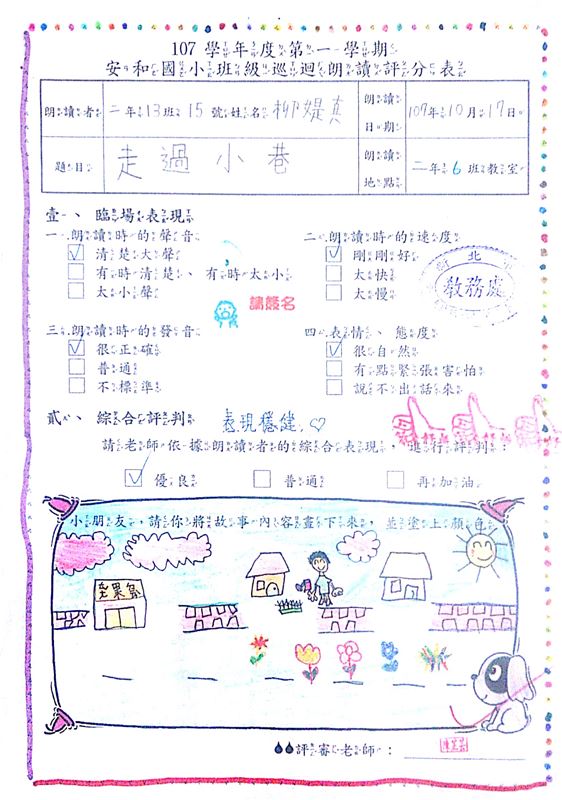 107 學年度第一學期
安和國小班級巡迴朗讀評分表
朗讀者 二年13班15號姓名柳媞真 朗讀日期 107年10月17日
題目 走過小巷 朗讀地點 二年6班教室
壹、 臨場表現
一、朗讀時的聲音 二、朗讀時的速度
清楚大聲 剛剛好
有時清楚、有時太小 太快
太小聲 太慢
新北市
教務處
請簽名
三、朗讀時的發音 四、表情、態度
很正確 很自然
普通 有點緊張害怕
不標準 說不出話來
貳、 綜合評判 表現穩健
請老師依據朗讀者的綜合表現，進行評判：
優良 普通 再加油
小朋友，請你將故事內容畫下來，並塗上顏色
評審老師：